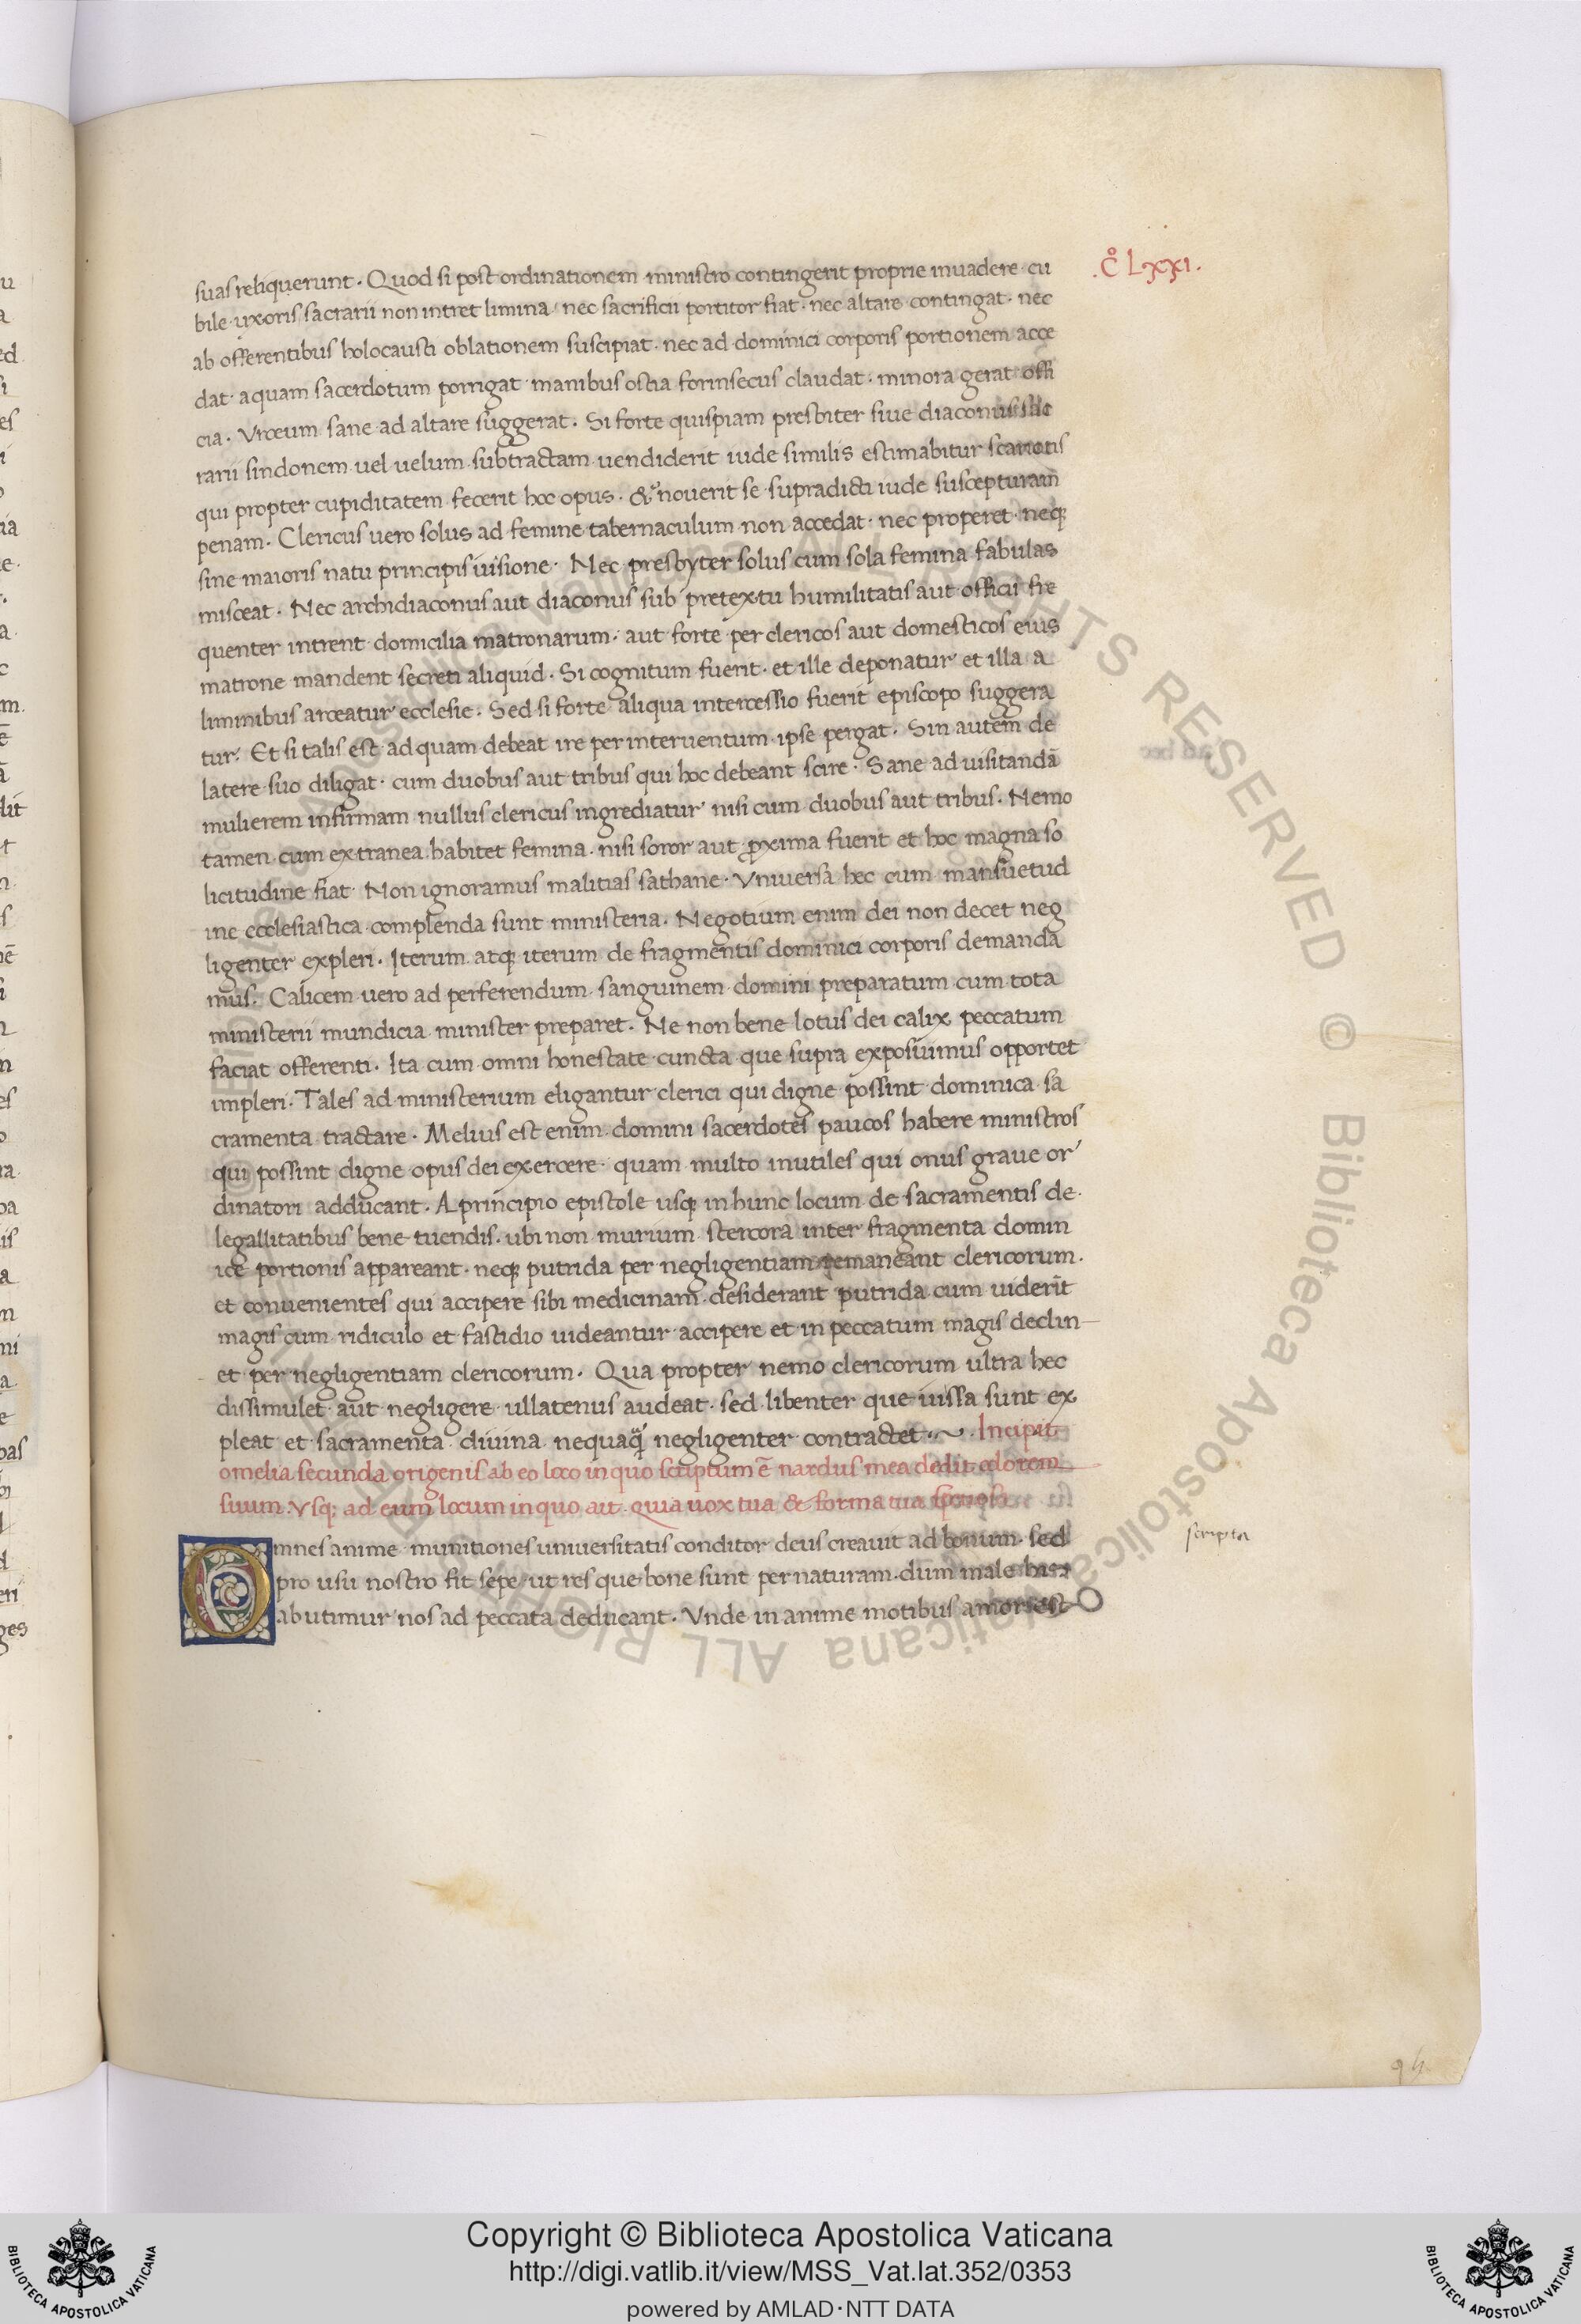 suas reliquerunt. Quod si post ordinationem ministro contingerit proprie inuadere cu
.Cͦ Lxxi.
bile uxoris sacrarii non intret limina nec sacrificii portitor fiat. nec altare contingat. nec
ab offerentibus holocausti oblationem suscipiat. nec ad dominici corporis portionem acce
dat. aquam sacerdotum porrigat manibus ostia forinsecus claudat. minora gerat offi
cia. Vrceum sane ad altare suggerat. Si forte quispiam presbiter siue diaconus
rarii sindonem uel uelum subtractam uendiderit iude similis estimabitur scariotis
qui propter cupiditatem fecerit hoc opus. & nouerit se supradicti iude suscepturam
penam. Clericus uero solus ad femine tabernaculum non accedat. nec properet neq;
sine maioris natu principis iussione. Nec presbyter solus cum sola femina fabulas
misceat. Nec archidiaconus aut diaconus sub pretextu humilitatis aut officii fre
quenter intrent domicilia matronarum. aut forte per clericos aut domesticos eius
matrone mandent secreti aliquid. Si cognitum fuerit. et ille deponatur et illa a
liminibus arceatur ecclesie. Sed si forte aliqua intercessio fuerit episcopo suggera
tur. Et si talis est ad quam debeat ire per interuentum ipse pergat. Sin autem de
latere suo diligat. cum duobus aut tribus qui hoc debeant scire. Sane ad uisitandā
mulierem infirmam nullus clericus ingrediatur nisi cum duobus aut tribus. Nemo
tamen cum extranea habitet femina. nisi soror aut ꝓxima fuerit et hoc magna so
licitudine fiat. Non ignoramus malitias sathane. Vniuersa hec cum mansuetud
ine ecclesiastica complenda sunt ministeria. Negotium enim dei non decet neg
ligenter expleri. Iterum atq; iterum de fragmentis dominici corporis demanda
mus. Calicem uero ad perferendum sanguinem domini preparatum cum tota
ministerii mundicia minister preparet. Ne non bene lotus dei calix peccatum
faciat offerenti. Ita cum omni honestate cuncta que supra exposuimus opportet
impleri. Tales ad ministerium eligantur clerici qui digne possint dominica sa
cramenta tractare. Melius est enim domini sacerdotes paucos habere ministros
qui possint digne opus dei exercere. quam multo inutiles qui onus graue or
dinatori adducant. A principio epistole usq; in hunc locum de sacramentis de
legallitatibus bene tuendis. ubi non murium stercora inter fragmenta domin
ice portionis appareant. neq; putrida per negligentiam remaneant clericorum.
et conuenientes qui accipere sibi medicinam desiderant putrida cum uiderīt
magis cum ridiculo et fastidio uideantur accipere et in peccatum magis declin
et per negligentiam clericorum. Qua propter nemo clericorum ultra hec
dissimulet aut negligere ullatenus audeat. sed libenter que iussa sunt ex
pleat et sacramenta diuina nequaq̃ negligenter contractet. Incipit
omelia secunda origenis ab eo loco in quo scriptum ē nardus mea dedit odorem
suum. Vsq; ad eum locum in quo ait. quia uox tua & forma tua
Omnes anime munitiones uniuersitatis conditor deus creauit ad bonum. sed
scriptor
pro usu nostro fit sepe ut res que bone sunt per naturam. dum male
abutimur nos ad peccata deducant. Vnde in anime motibus amor est
94
Copyright © Biblioteca Apostolica Vaticana
http://digi.vatlib.it/view/MSS_Vat.lat.352/0353
powered by AMLAD·NTT DATA
BIBLIOTECA APOSTOLICA VATICANA
BIBLIOTECA APOSTOLICA VATICANA
© Biblioteca Apostolica Vaticana ALL RIGHTS RESERVED © Biblioteca Apostolica Vaticana ALL RIGHTS RESERVED